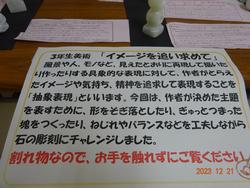 3年生美術 「イメージを追い求めて」
風景や人、モノなど、見えたとおりに再現して描いた
り作ったりする具象的な表現に対して、作者がとらえ
たイメージや気持ち、精神を追求して表現することを
「抽象表現」といいます。今回は、作者が決めた主題
を表すために、形をそぎ落としたり、ぎゅっとつまった
塊をつくったり、ねじれやバランスなどを工夫しながら
石の彫刻にチャレンジしました。
割れ物なので、お手を触れずにご覧ください
2023 12 21